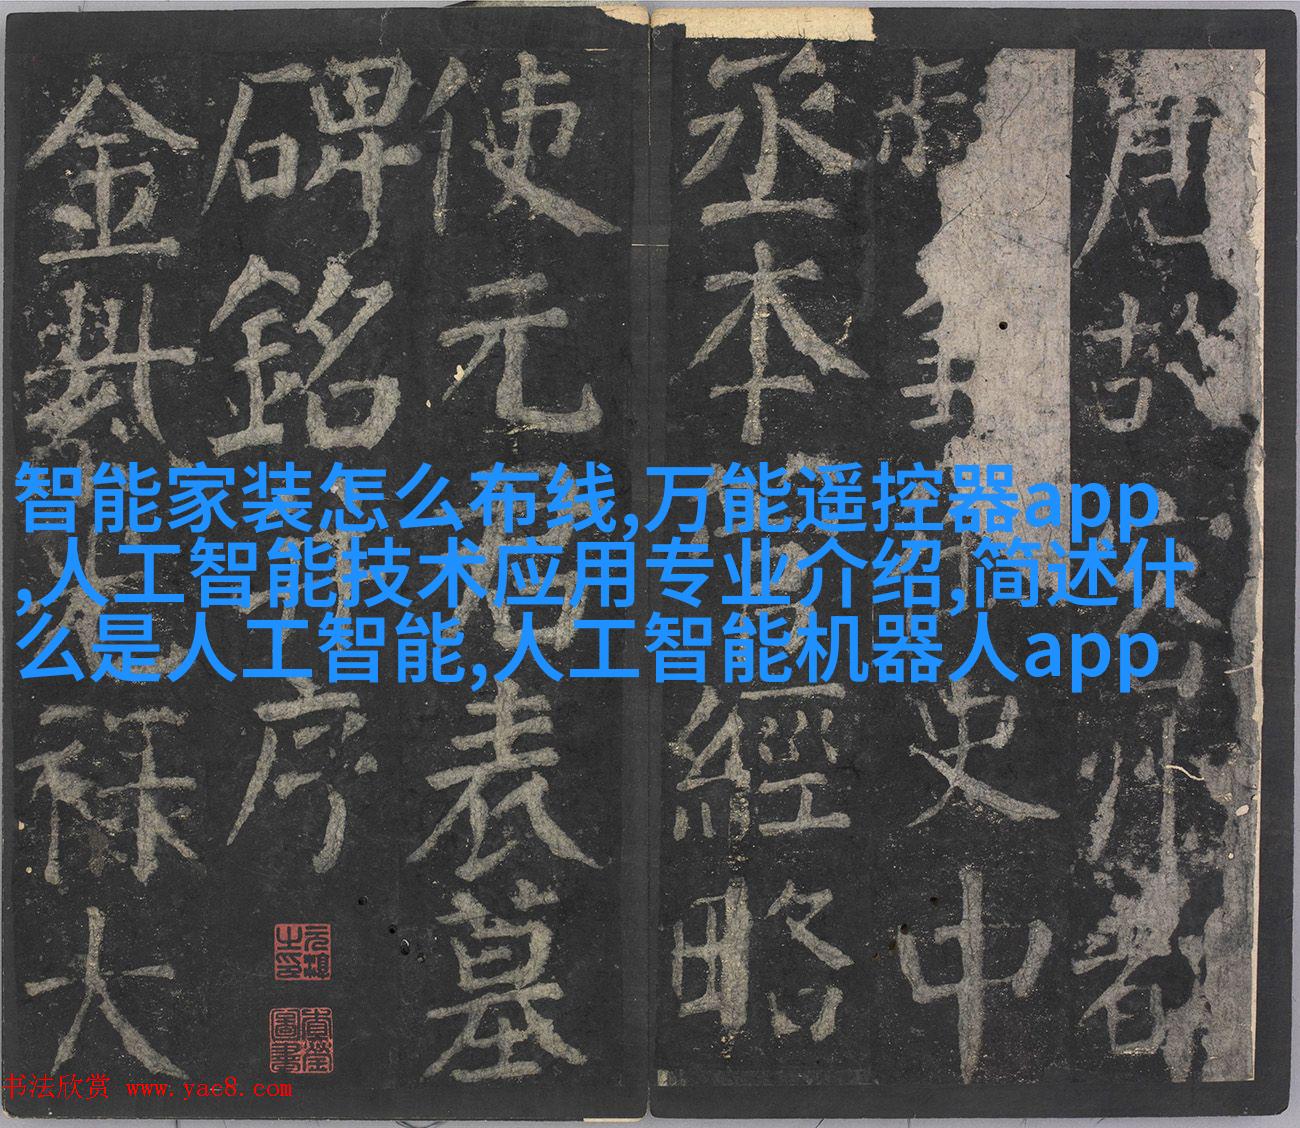 唐故容州都
史中
丞本管經略
使元君表墓
碑銘并序
金紫光祿大
智能家装怎么布线,万能遥控器app
,人工智能技术应用专业介绍,简述什
么是人工智能,人工智能机器人app
书法欣赏 www.yac8.com